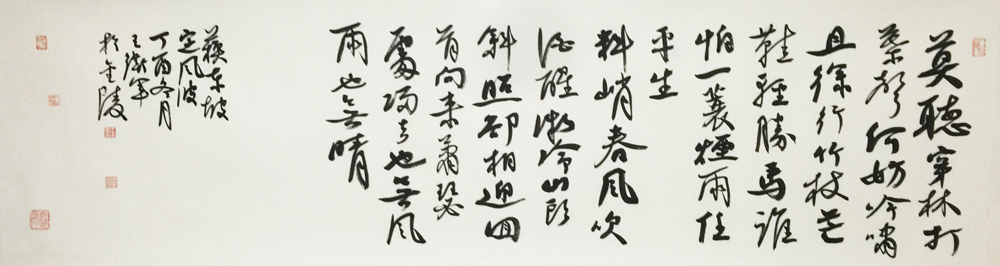 莫聽穿林打
葉聲何妨吟嘯
且徐行竹杖芒
鞋輕勝馬誰
怕一蓑煙雨任
平生
料峭春風吹
酒醒微冷山頭
斜照卻相迎回
首向來蕭瑟
處歸去也無風
雨也無晴
蘇東坡
定風波
丁酉冬月
於金陵